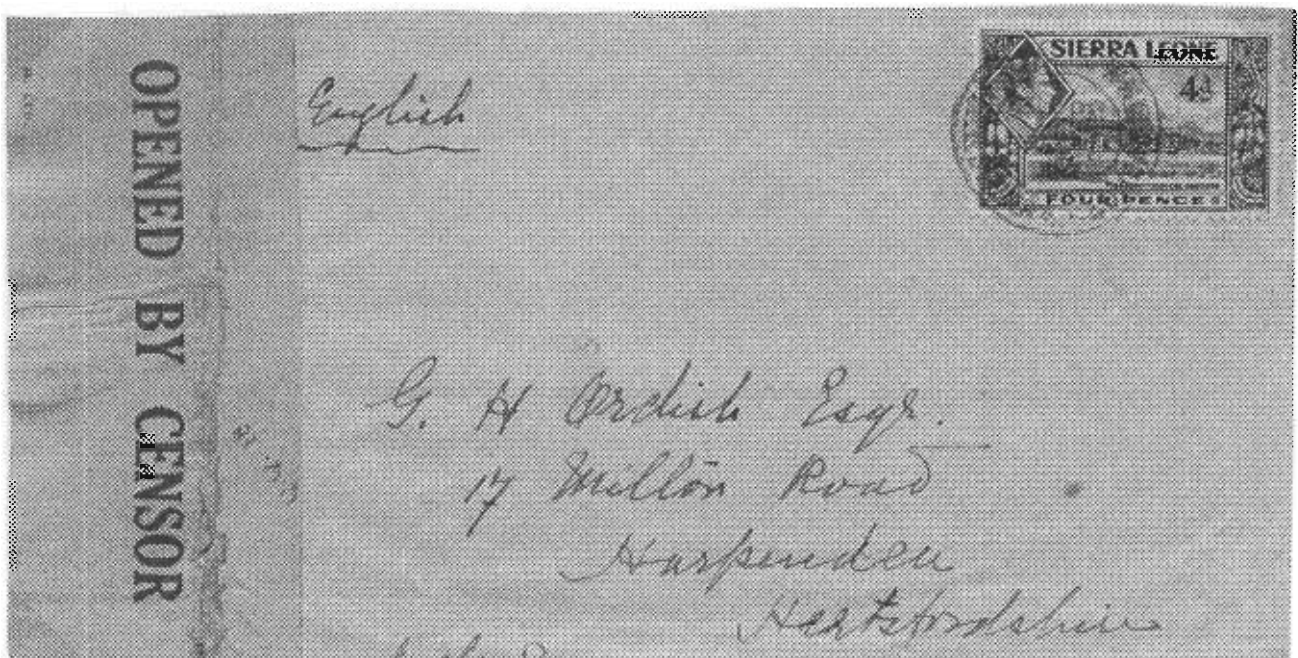 OPENED BY CENSOR
English
SIERRA LEONE
4d
FOUR PENCES
G. H Ordish Esqr.
17 Millon Road
Harpenden
Hertsfordshire